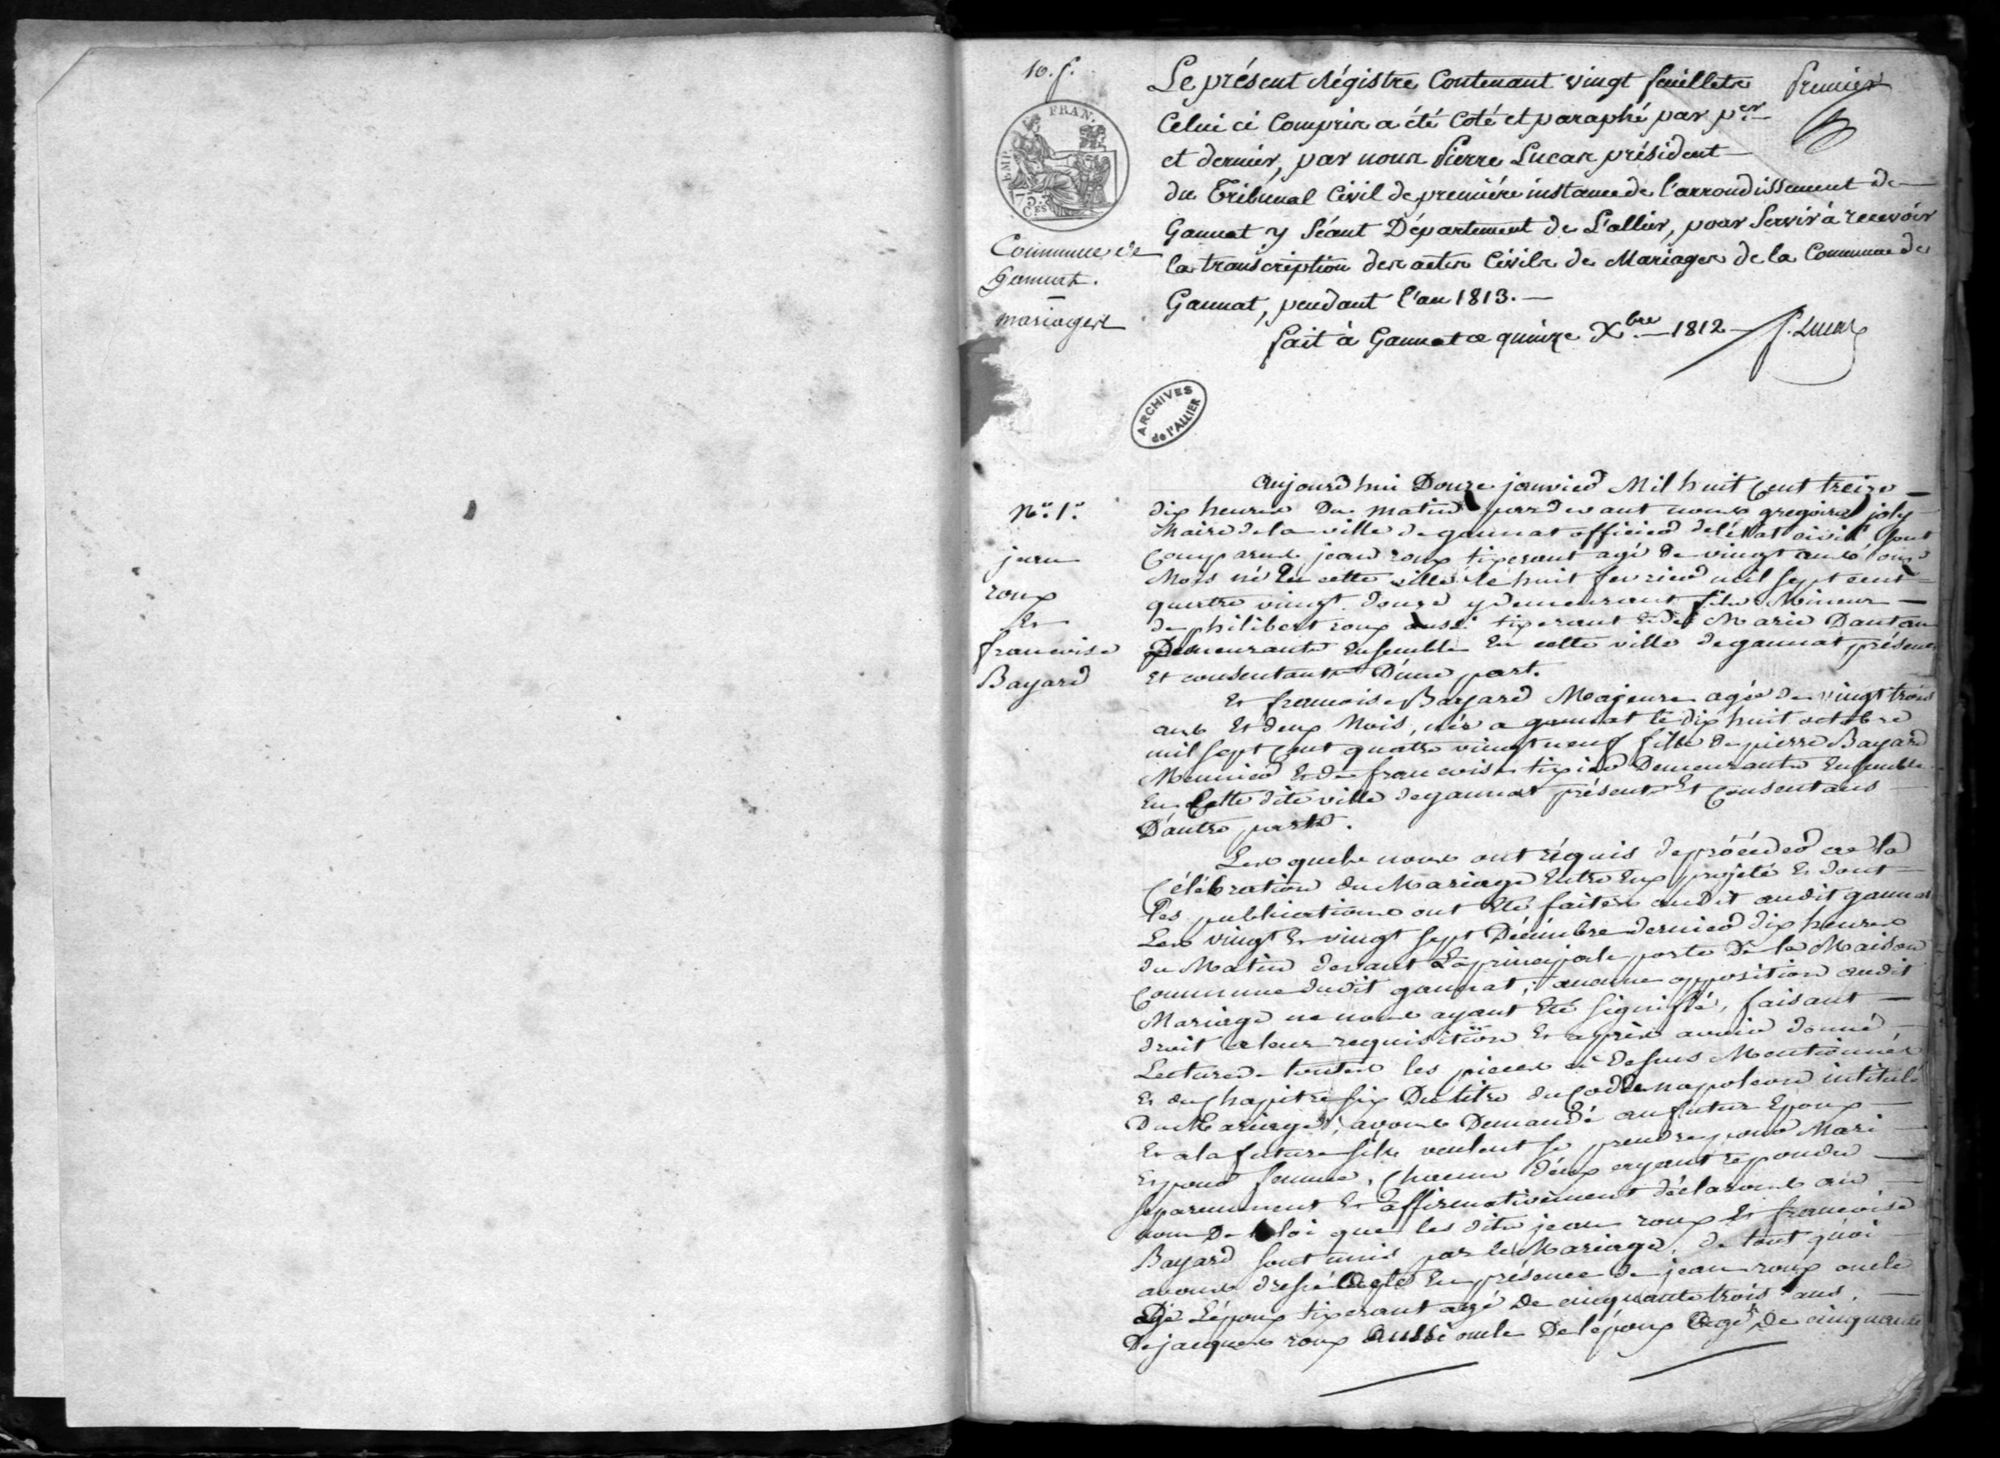 10. f.
Le présent Régistre Contenant vingt feuillets
premier
Celui ci Compris a été Coté et paraphé par p.er
et dernier, par nous Pierre Lucas président
du Tribunal Civil de première instance de l'arrondissement de
Gannat y Séant Département de L'allier, pour Servir à recevoir
la transcription des actes Civils de Mariages de la Commune de
Gannat, pendant l'an 1813.
fait à Gannat ce quinze Xbre 1812
P. Lucas
FRAN.
EMP.
75
Ces
Commune de
Gannat.
mariages
ARCHIVES
de l'ALLIER
N.o 1.er
jean
roux
Et
francoise
Bayard
aujourd'hui Douze janvier Mil huit Cent treize
dix heures Du matin pardevant nous gregoire joly
Maire de la ville de gannat officier de l'état civil sont
Comparus jean roux tixerant agé de vingt ans onze
Mois né En cette ville le huit fevrier mil sept cent
quatre vingt douze y demeurant fils Mineur
de philibert roux aussi tixerant Et de Marie Dantan
Demeurants Ensemble En cette ville de gannat présens
Et consentants D'une part.
Et francoise Bayard Majeure agée de vingt trois
ans Et deux Mois, née a gannat le dix huit octobre
mil sept Cent quatre vingt neuf fille de pierre Bayard
Meunier Et de francoise tixier Demeurants Ensemble
En Cette dite ville de gannat présents Et Consentans
D'autre part.
Les quels nous ont réquis de procéder a la
Célébration du Mariage Entre Eux projeté Et dont
les publications ont Eté faites audit gannat
Les vingt Et vingt sept Décembre dernier dix heures
du Matin devant La principale porte De la Maison
Commune dudit gannat, aucune opposition audit
Mariage ne nous ayant Eté signifié, faisant
droit a leur requisition Et après avoir donné
Lecture de toutes les pieces ci dessus Mentionnées
Et du Chapitre six Du titre du Code napoleon intitulé
Du Mariage, avons Demandé au futur Epoux
Et a la future s'ils veulent se prendre pour Mari
Et pour femme, Chacun d'eux ayant repondu
separemment Et affirmativement déclarons au
nom De la loi que les dits jean roux Et francoise
Bayard sont unis par le Mariage, de tout quoi
avons dressé acte En présence de jean roux oncle
De L'époux tixerant agé De cinquante trois ans,
De jacques roux aussi oncle De l'époux agé De cinquante